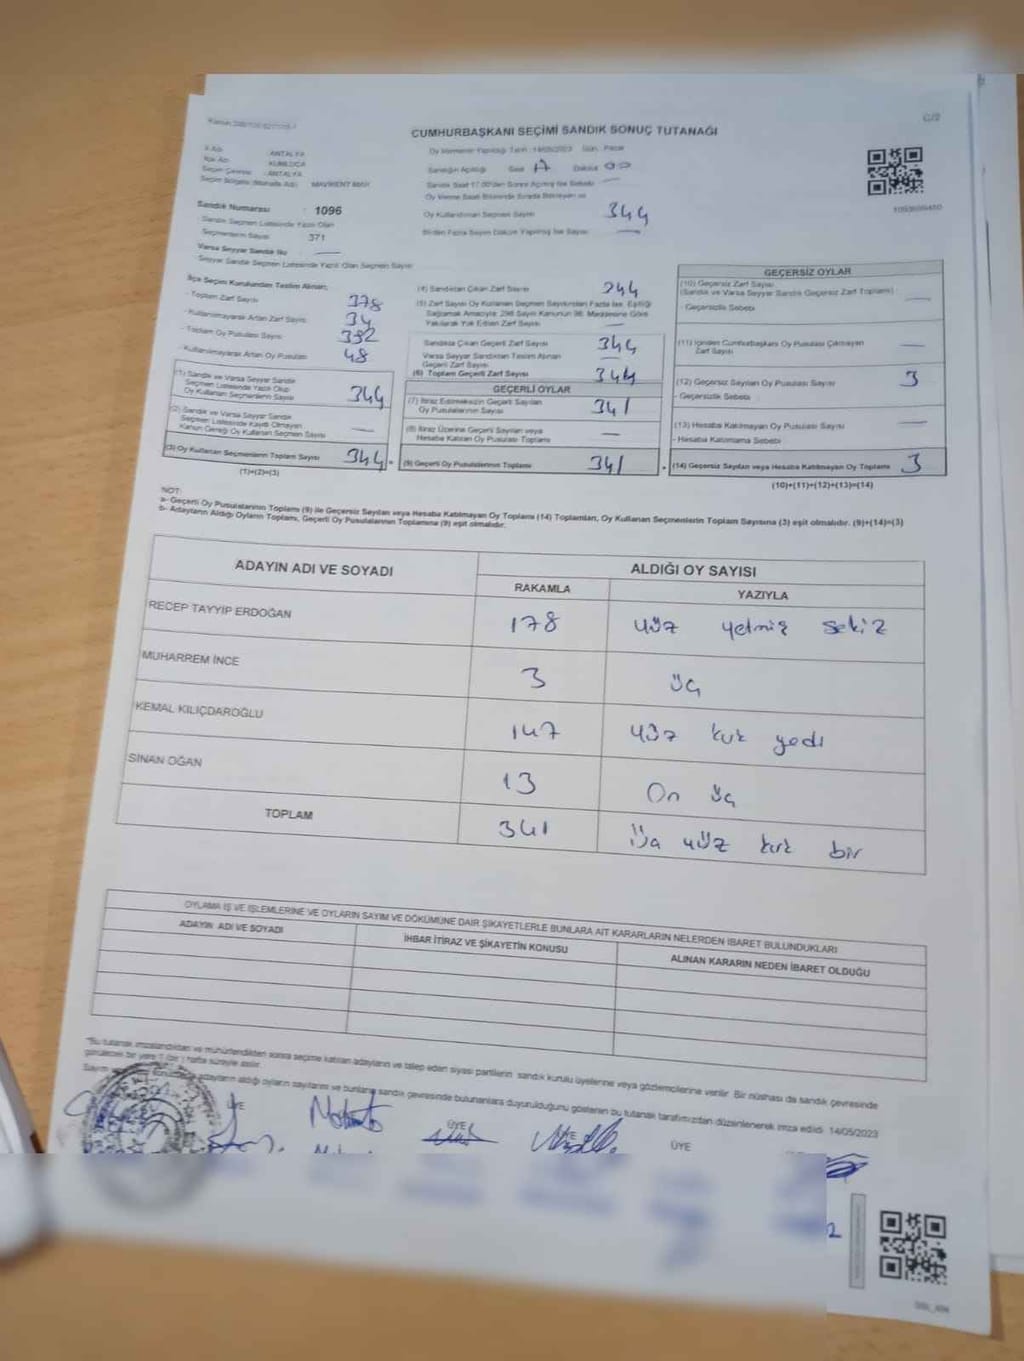 C/2
CUMHURBAŞKANI SEÇİMİ SANDIK SONUÇ TUTANAĞI
İl Adı : ANTALYA
İlçe Adı : KUMLUCA
Seçim Çevresi : ANTALYA
Seçim Bölgesi (Mahalle Adı) MAVİKENT MAH.
Sandık Numarası : 1096
Sandık Seçmen Listesinde Yazılı Olan
Seçmenlerin Sayısı 371
Varsa Seyyar Sandık No
Seyyar Sandık Seçmen Listesinde Yazılı Olan Seçmen Sayısı
Oy Vermenin Yapıldığı Tarih : 14/05/2023 Gün : Pazar
Sandığın Açıldığı Saat Dakika 00
Sandık Saat 17.00'den Sonra Açılmış İse Sebebi
Oy Verme Saati Bitiminde Sırada Bekleyen ve
Oy Kullandırılan Seçmen Sayısı 344
Birden Fazla Sayım Döküm Yapılmış İse Sayısı
İlçe Seçim Kurulundan Teslim Alınan;
- Toplam Zarf Sayısı 378
- Kullanılmayarak Artan Zarf Sayısı 34
- Toplam Oy Pusulası Sayısı 392
- Kullanılmayarak Artan Oy Pusulası 48
(1) Sandık ve Varsa Seyyar Sandık
Seçmen Listesinde Yazılı Olup
Oy Kullanan Seçmenlerin Sayısı 344
(2) Sandık ve Varsa Seyyar Sandık
Seçmen Listesinde Kaydı Olmayan
Kanun Gereği Oy Kullanan Seçmen Sayısı
(3) Oy Kullanan Seçmenlerin Toplam Sayısı 344 =
(1)+(2)=(3)
(4) Sandıktan Çıkan Zarf Sayısı 244
(5) Zarf Sayısı Oy Kullanan Seçmen Sayısından Fazla İse, Eşitliği
Sağlamak Amacıyla; 298 Sayılı Kanunun 98. Maddesine Göre
Yakılarak Yok Edilen Zarf Sayısı
Sandıkta Çıkan Geçerli Zarf Sayısı 344
Varsa Seyyar Sandıktan Teslim Alınan
Geçerli Zarf Sayısı
(6) Toplam Geçerli Zarf Sayısı 344
GEÇERLİ OYLAR
(7) İtiraz Edilmeksizin Geçerli Sayılan
Oy Pusulalarının Sayısı 341
(8) İtiraz Üzerine Geçerli Sayılan veya
Hesaba Katılan Oy Pusulası Toplamı
(9) Geçerli Oy Pusulalarının Toplamı 341 +
GEÇERSİZ OYLAR
(10) Geçersiz Zarf Sayısı
(Sandık ve Varsa Seyyar Sandık Geçersiz Zarf Toplamı)
- Geçersizlik Sebebi
(11) İçinden Cumhurbaşkanı Oy Pusulası Çıkmayan
Zarf Sayısı
(12) Geçersiz Sayılan Oy Pusulası Sayısı 3
- Geçersizlik Sebebi
(13) Hesaba Katılmayan Oy Pusulası Sayısı
- Hesaba Katılmama Sebebi
(14) Geçersiz Sayılan veya Hesaba Katılmayan Oy Toplamı 3
(10)+(11)+(12)+(13)=(14)
NOT:
a- Geçerli Oy Pusulalarının Toplamı (9) ile Geçersiz Sayılan veya Hesaba Katılmayan Oy Toplamı (14) Toplamları, Oy Kullanan Seçmenlerin Toplam Sayısına (3) eşit olmalıdır. (9)+(14)=(3)
b- Adayların Aldığı Oyların Toplamı, Geçerli Oy Pusulalarının Toplamına (9) eşit olmalıdır.
ADAYIN ADI VE SOYADI
ALDIĞI OY SAYISI
RAKAMLA YAZIYLA
RECEP TAYYİP ERDOĞAN 178 yüz yetmiş sekiz
MUHARREM İNCE 3 üç
KEMAL KILIÇDAROĞLU 147 yüz kırk yedi
SİNAN OĞAN 13 On üç
TOPLAM 341 Üç yüz kırk bir
OYLAMA İŞ VE İŞLEMLERİNE VE OYLARIN SAYIM VE DÖKÜMÜNE DAİR ŞİKAYETLERLE BUNLARA AİT KARARLARIN NELERDEN İBARET BULUNDUKLARI
ADAYIN ADI VE SOYADI İHBAR İTİRAZ VE ŞİKAYETİN KONUSU ALINAN KARARIN NEDEN İBARET OLDUĞU
"Bu tutanak imzalandıktan ve mühürlendikten sonra seçime katılan adayların ve talep eden siyasi partilerin sandık kurulu üyelerine veya gözlemcilerine verilir. Bir nüshası da sandık çevresinde
görülecek bir yere 1 (bir) hafta süreyle asılır.
Sayım adayların aldığı oyların sayılarını ve bunların sandık çevresinde bulunanlara duyurulduğunu gösteren bu tutanak tarafımızdan düzenlenerek imza edildi. 14/05/2023
ÜYE ÜYE ÜYE ÜYE